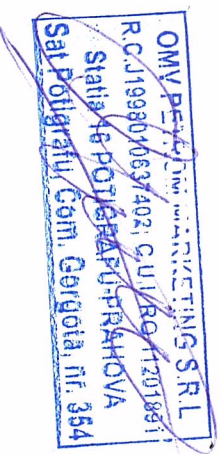 OMV PETROM MARKETING S.R.L
R.C.J1998010637402; C.U.I. RO11201891
Statia 16 POTIGRAFU-PRAHOVA
Sat Potigrafu, Com. Gorgota, nr. 364